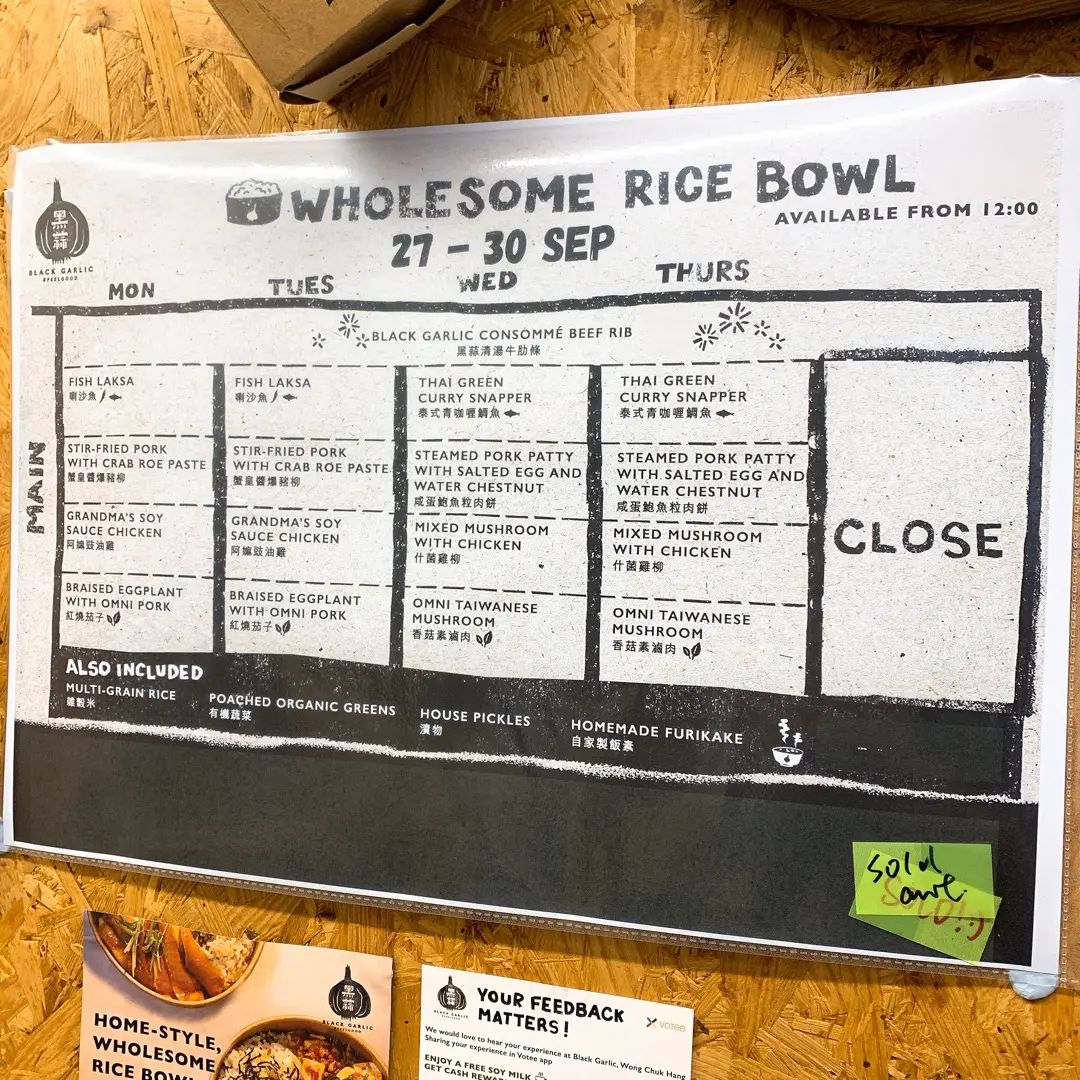 WHOLESOME RICE BOWL
AVAILABLE FROM 12:00
27 – 30 SEP
黑蒜
BLACK GARLIC
#FEELGOOD
MON
TUES
WED
THURS
BLACK GARLIC CONSOMMÉ BEEF RIB
黑蒜清湯牛肋條
MAIN
FISH LAKSA
喇沙魚
STIR-FRIED PORK
WITH CRAB ROE PASTE
蟹皇醬爆豬柳
GRANDMA'S SOY
SAUCE CHICKEN
阿嫲豉油雞
BRAISED EGGPLANT
WITH OMNI PORK
紅燒茄子
FISH LAKSA
喇沙魚
STIR-FRIED PORK
WITH CRAB ROE PASTE
蟹皇醬爆豬柳
GRANDMA'S SOY
SAUCE CHICKEN
阿嫲豉油雞
BRAISED EGGPLANT
WITH OMNI PORK
紅燒茄子
THAI GREEN
CURRY SNAPPER
泰式青咖喱鯛魚
STEAMED PORK PATTY
WITH SALTED EGG AND
WATER CHESTNUT
咸蛋鮑魚粒肉餅
MIXED MUSHROOM
WITH CHICKEN
什菌雞柳
OMNI TAIWANESE
MUSHROOM
香菇素滷肉
THAI GREEN
CURRY SNAPPER
泰式青咖喱鯛魚
STEAMED PORK PATTY
WITH SALTED EGG AND
WATER CHESTNUT
咸蛋鮑魚粒肉餅
MIXED MUSHROOM
WITH CHICKEN
什菌雞柳
OMNI TAIWANESE
MUSHROOM
香菇素滷肉
CLOSE
ALSO INCLUDED
MULTI-GRAIN RICE
雜穀米
POACHED ORGANIC GREENS
有機蔬菜
HOUSE PICKLES
漬物
HOMEMADE FURIKAKE
自家製飯素
sold
SOLD!:)
黑蒜
BLACK GARLIC
#FEELGOOD
HOME-STYLE,
WHOLESOME
RICE
黑蒜
BLACK GARLIC
YOUR FEEDBACK
MATTERS!
votee
We would love to hear your experience at Black Garlic, Wong Chuk Hang
Sharing your experience in Votee app
ENJOY A FREE SOY MILK
GET CASH